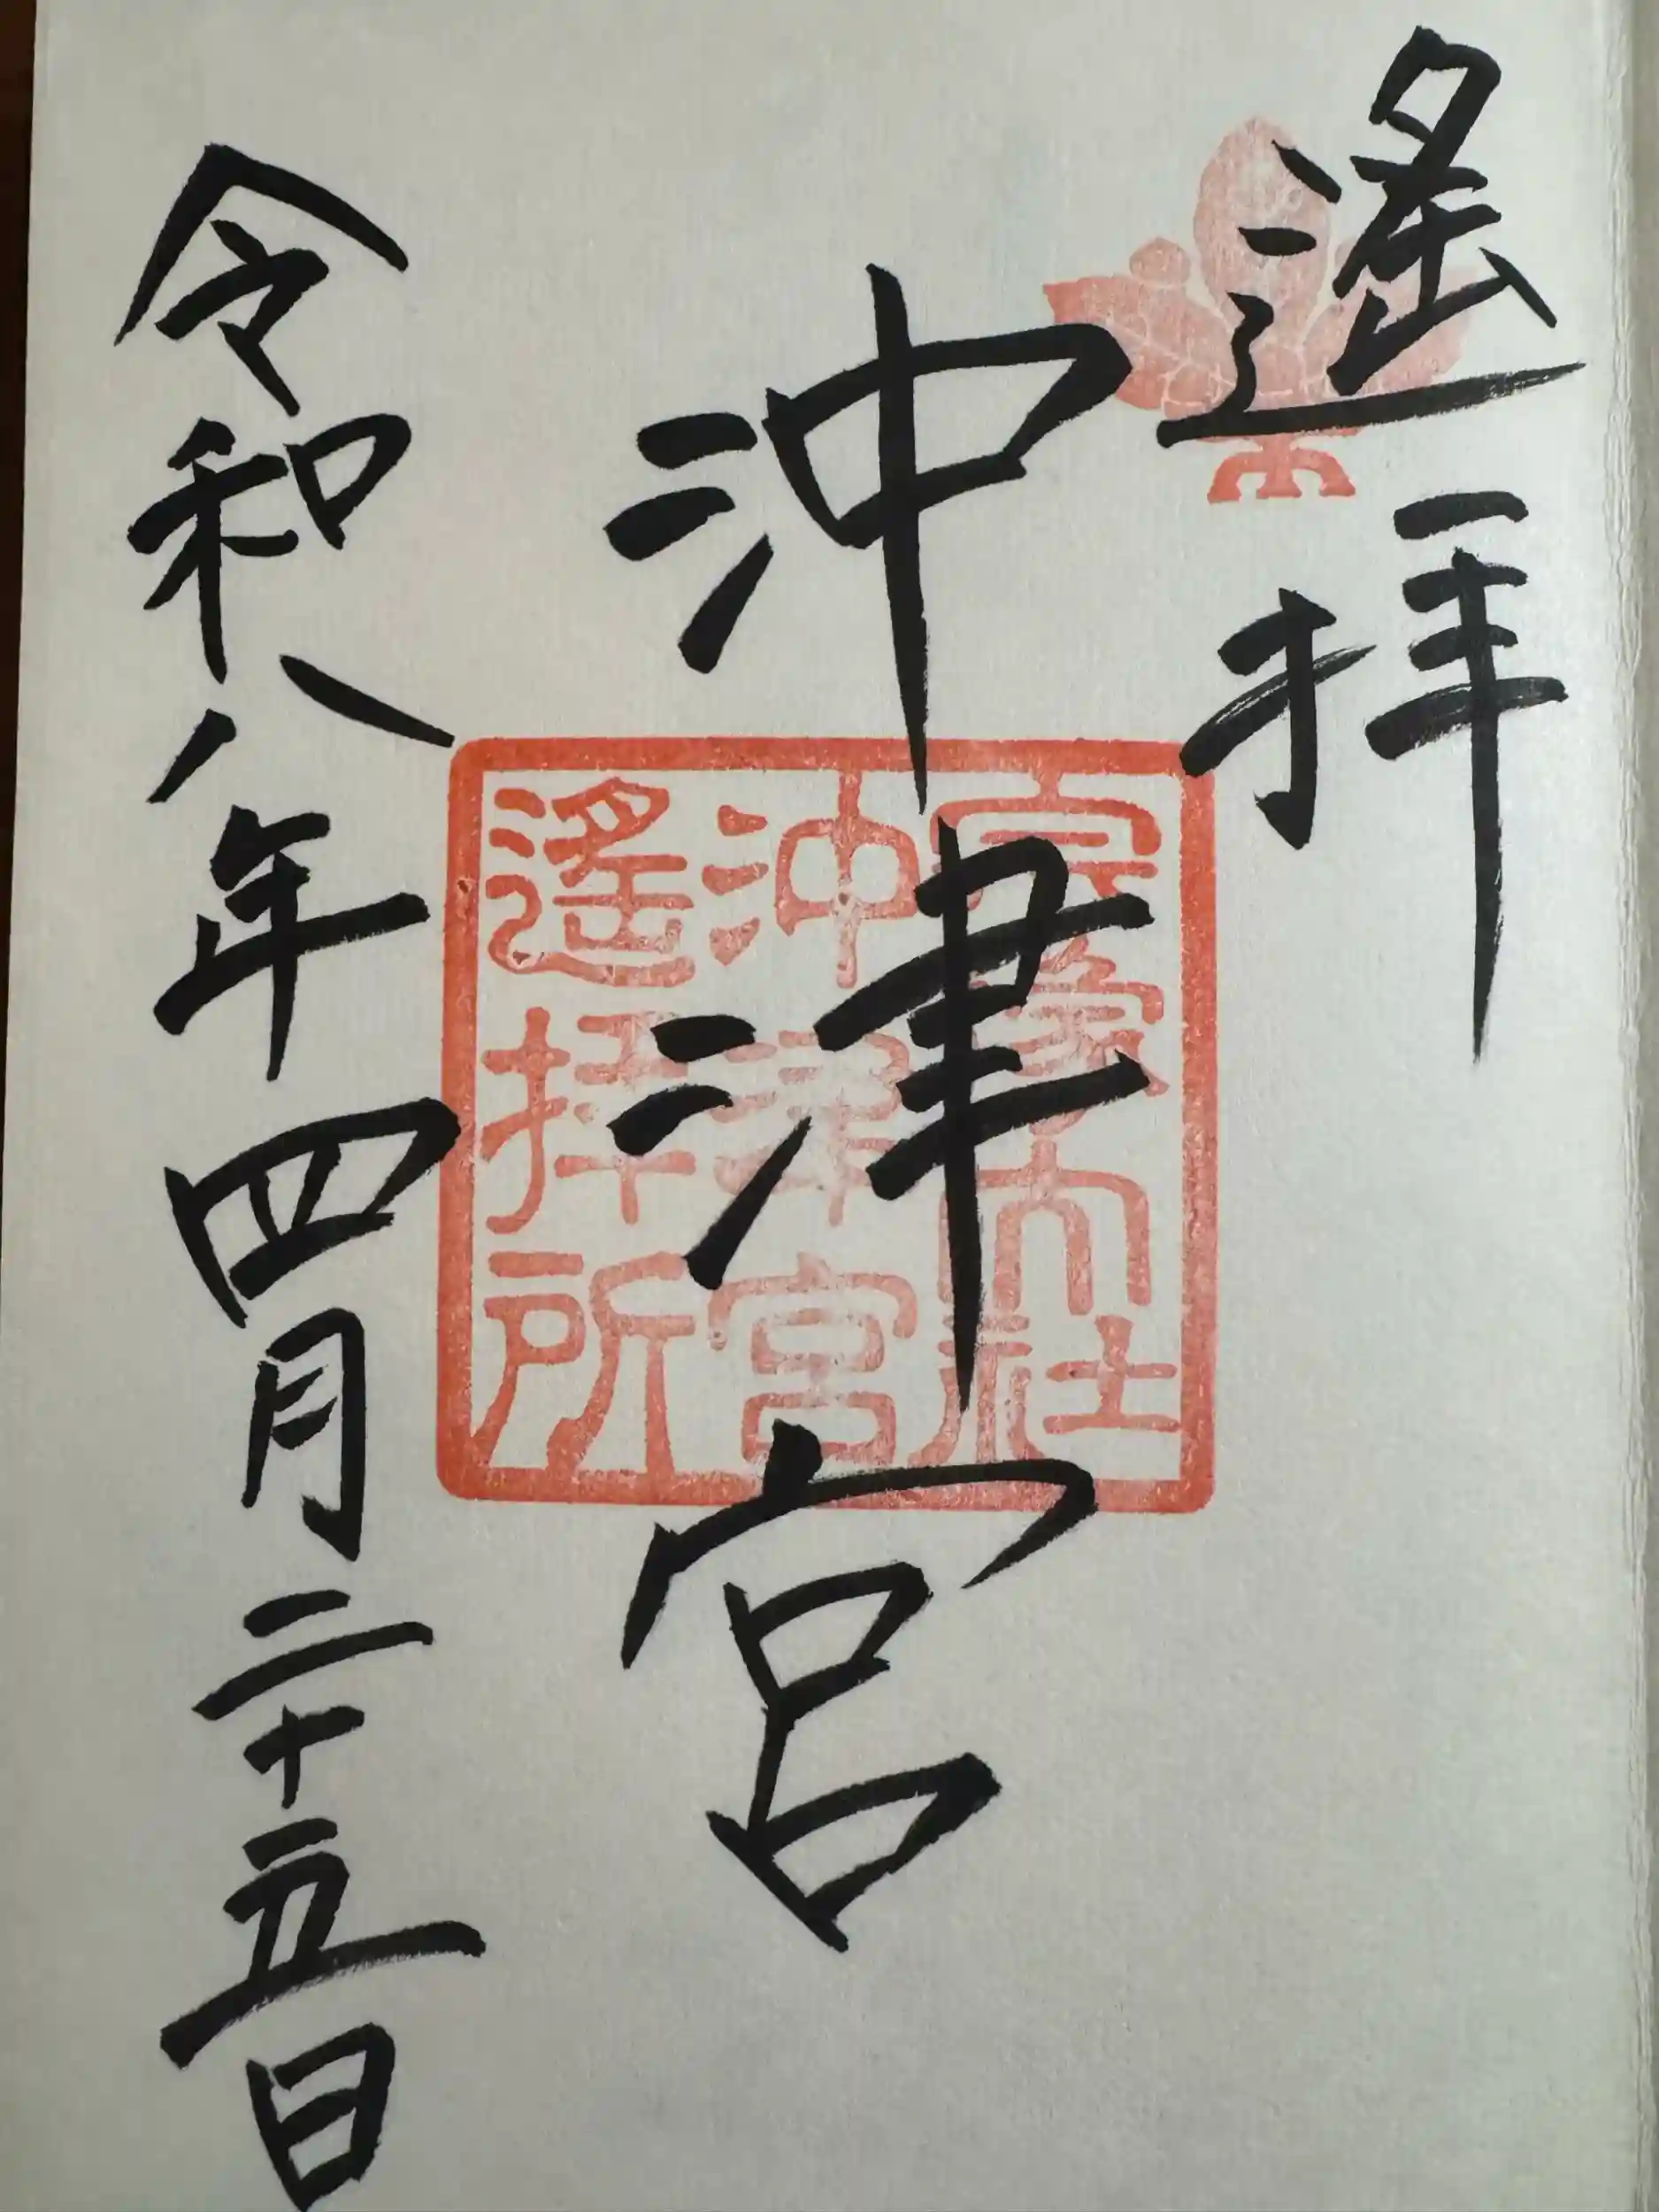 遙拝
沖津宮
令和八年四月二十五日
宗像大社
沖津宮
遙拝所